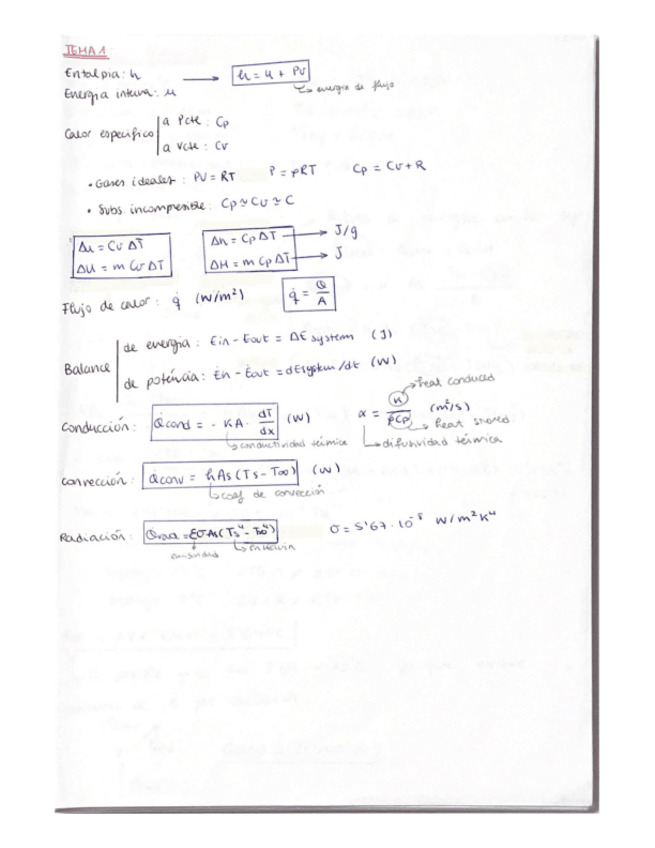 TEMA 1
Entalpia: h → h = u + Pv
↳ energia de flujo
Energia interna: u
Calor especifico | a Pcte : Cp
| a Vcte : Cv
• Gases ideales : PV = RT P = ρRT Cp = Cv + R
• Subs. incompresible : Cp ≃ Cv ≃ C
Δu = Cv ΔT
ΔU = m Cv ΔT
Δh = Cp ΔT → J/g
ΔH = m Cp ΔT → J
Flujo de calor : q̇ (W/m²) q̇ = Q̇/A
Balance | de energia : Ein - Eout = ΔE system (J)
| de potencia : Ėin - Ėout = dEsystem/dt (W)
Conducción : Q̇cond = - KA · dT/dx (W)
↳ conductividad térmica
α = K/ρCp (m²/s)
→ heat conduced
→ heat stored
↳ difusividad térmica
Convección : Q̇conv = hAs (Ts - T∞) (W)
↳ coef de convección
Radiación : Q̇rad = εσAs (Ts⁴ - T∞⁴)
emisividad ↳ en kelvin
σ = 5'67 · 10⁻⁸ W/m²K⁴